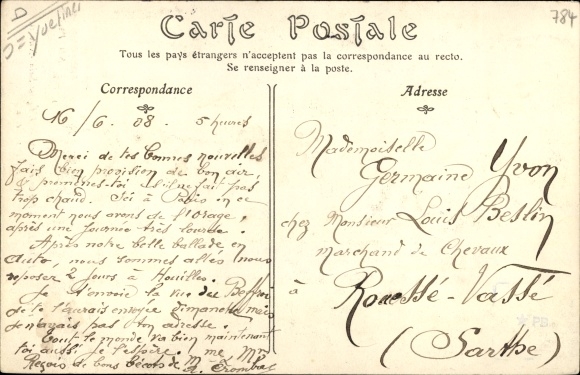 D = Yvelines
784
Carte Postale
Tous les pays étrangers n'acceptent pas la correspondance au recto.
Se renseigner à la poste.
Correspondance
16/6 . 08 . 5 heures
Merci de tes bonnes nouvelles
fais bien provision de bon air,
et promènes-toi s'il ne fait pas
trop chaud. Ici à Paris en ce
moment nous avons de l'orage,
après une journée très lourde.
Après notre belle ballade en
auto, nous sommes allés nous
reposer 2 jours à Houilles.
Je t'envoie la vue du Beffroi
je te l'aurais envoyée dimanche mais
je n'avais pas ton adresse.
Tout le monde va bien maintenant
toi aussi je l'espère.
Reçois de bons bécots de
Adresse
Mademoiselle
Germaine Yvon
chez Monsieur Louis Beslin
marchand de Chevaux
à Rouessé-Vassé
(Sarthe)